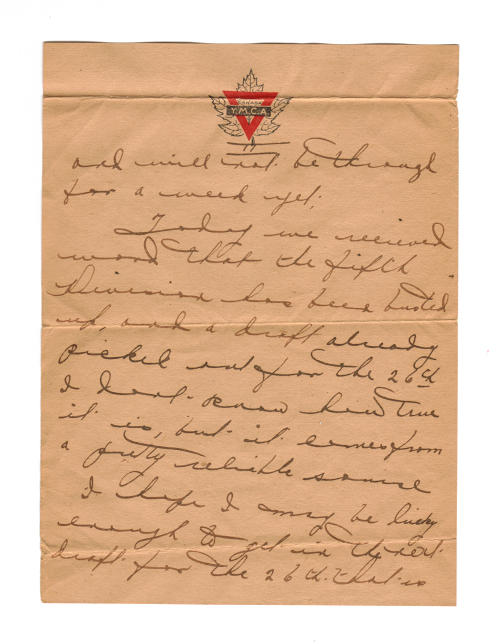 CANADA
Y.M.C.A.
11
and will not be through
for a week yet.
Today we recieved
word that the fifth
Division has been busted
up, and a draft already
picked out for the 26th
I dont know how true
it is, but it comes from
a pretty reliable source
I hope I may be lucky
enough to get in the next
draft for the 26th. that is